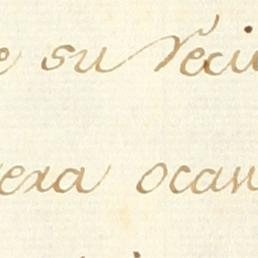 e su Veci
exa ocan